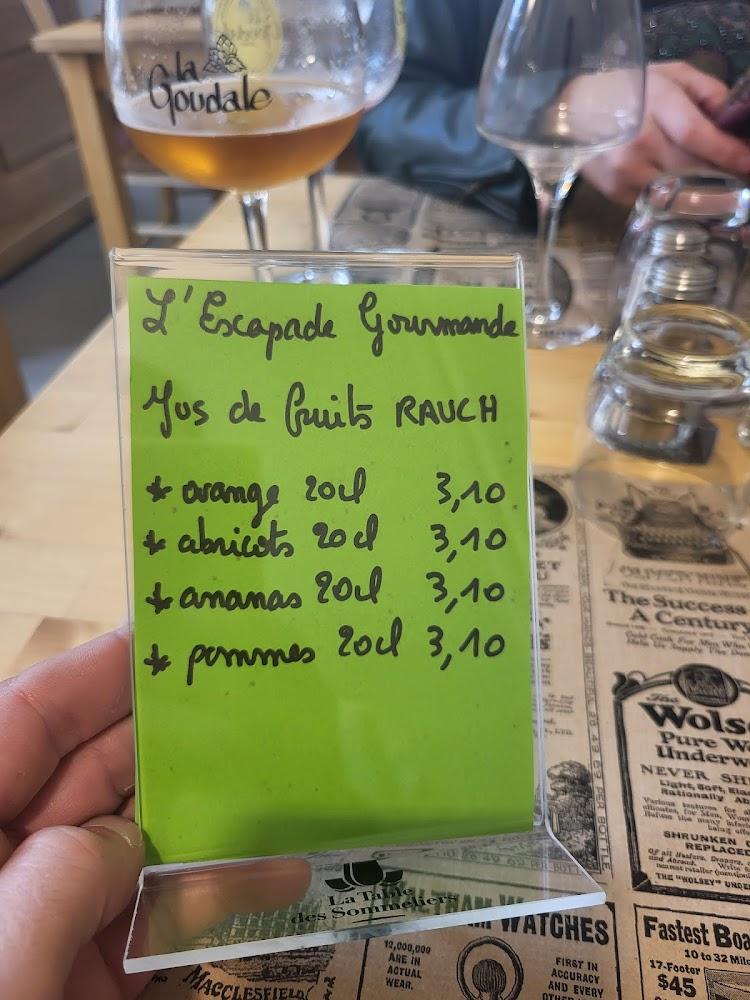 la
Goudale
L'Escapade Gourmande
Jus de fruits RAUCH
* orange 20cl 3,10
* abricots 20cl 3,10
* ananas 20cl 3,10
* pommes 20cl 3,10
La Table
des Sommeliers
The Success
A Century
The
Wols
Pure W
Underw
NEVER SH
Light, Soft, Ela
Rationally A
SHRUNKEN
REPLACE
THE "WOLSEY" UND
WATCHES
12,000,000
ARE IN
ACTUAL
WEAR.
FIRST IN
ACCURACY
AND EVERY
Fastest Boa
10 to 32 Mile
17-Footer
$45
MACCLESFIELD